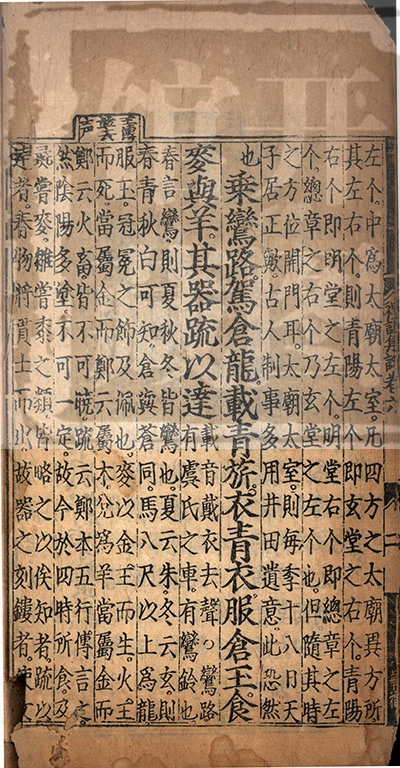 左个。中爲太廟太室。凡四方之太廟異方所
其左右个。則青陽左个即玄堂之右个。青陽
右个即明堂之左个。明堂右个即總章之左
个。總章之右个乃玄堂之左个也。但隨其時
之方位開門耳。太廟太室。則每季十八日天
子居正歟古人制事多用井田遺意。此恐然
也 乘鸞路駕倉龍。載青旂。衣青衣服倉玉。食
麥與羊。其器疏以達
載音戴衣去聲○鸞路
有虞氏之車。有鸞鈴也。
春言鸞。則夏秋冬皆鸞也。夏云朱。冬云玄。則
春青秋白可知。倉與蒼同。馬八尺以上爲龍
服玉。冠冕之飾及佩也。麥以金王而生。火王
而死。當屬金。而鄭云屬木。兌爲羊。當屬金而
鄭云火畜。皆不可曉。疏云鄭本五行傳言之。
然陰陽多塗。不可一定。故今於四時所食。及
彘嘗麥。雛嘗黍之類。皆略之。以俟知者。疏以
達者。春物將貫土而出。故器之刻鏤者。使文
禮記集說卷六
二